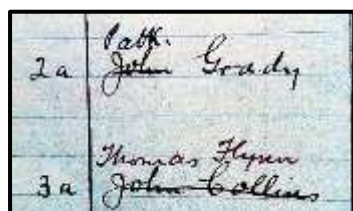 Patk.
2a John Grady
Thomas Flynn
3a John Collins